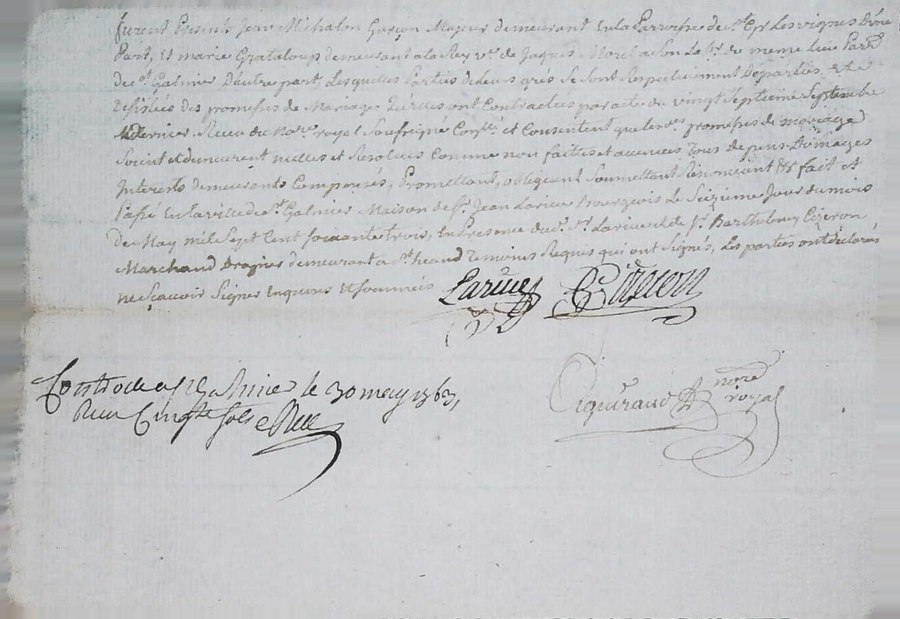 furent Presents Jean Michalon Garçon Majeur demeurant En la Parroisse de st Cyr Les vignes D'une
Part, Et marie Grataloup demeurant a la de Jaques Morel a son du meme lieu Parsse
de st Galmier D'autre part, Lesquelles Parties de leurs gres Se sont Respectivement Departies, et
Desistées des promesses de Mariage quelles ont Contractées par acte du vingt Septieme Septembre
dernier Receu du Nore royal Soussigné et Consentent que lesd. promesses de mariage
Soient et demeurent nulles et Resolues Comme non faittes et avenues Tous depens Domages
Interets demeurants Compensés, Promettant, obligeant Soumettant Renonceant &c fait et
Passé En la ville de st Galmier Maison de sr. Jean Larive Bourgeois Le Seizieme Jour du mois
De May mil Sept Cent soixante trois, En Presence dud. sr. Larive et de sr. Barthelemy Cizeron
Marchand demeurant a st. heand Temoins Requis qui ont Signés, Les parties ont declarés
ne sçavoir Signer Enquises Et sommées
Larive Cizeron
Controllé a st Galmier le 30 may 1763,
Receu Cinq sols
Pigneraud nore
royal